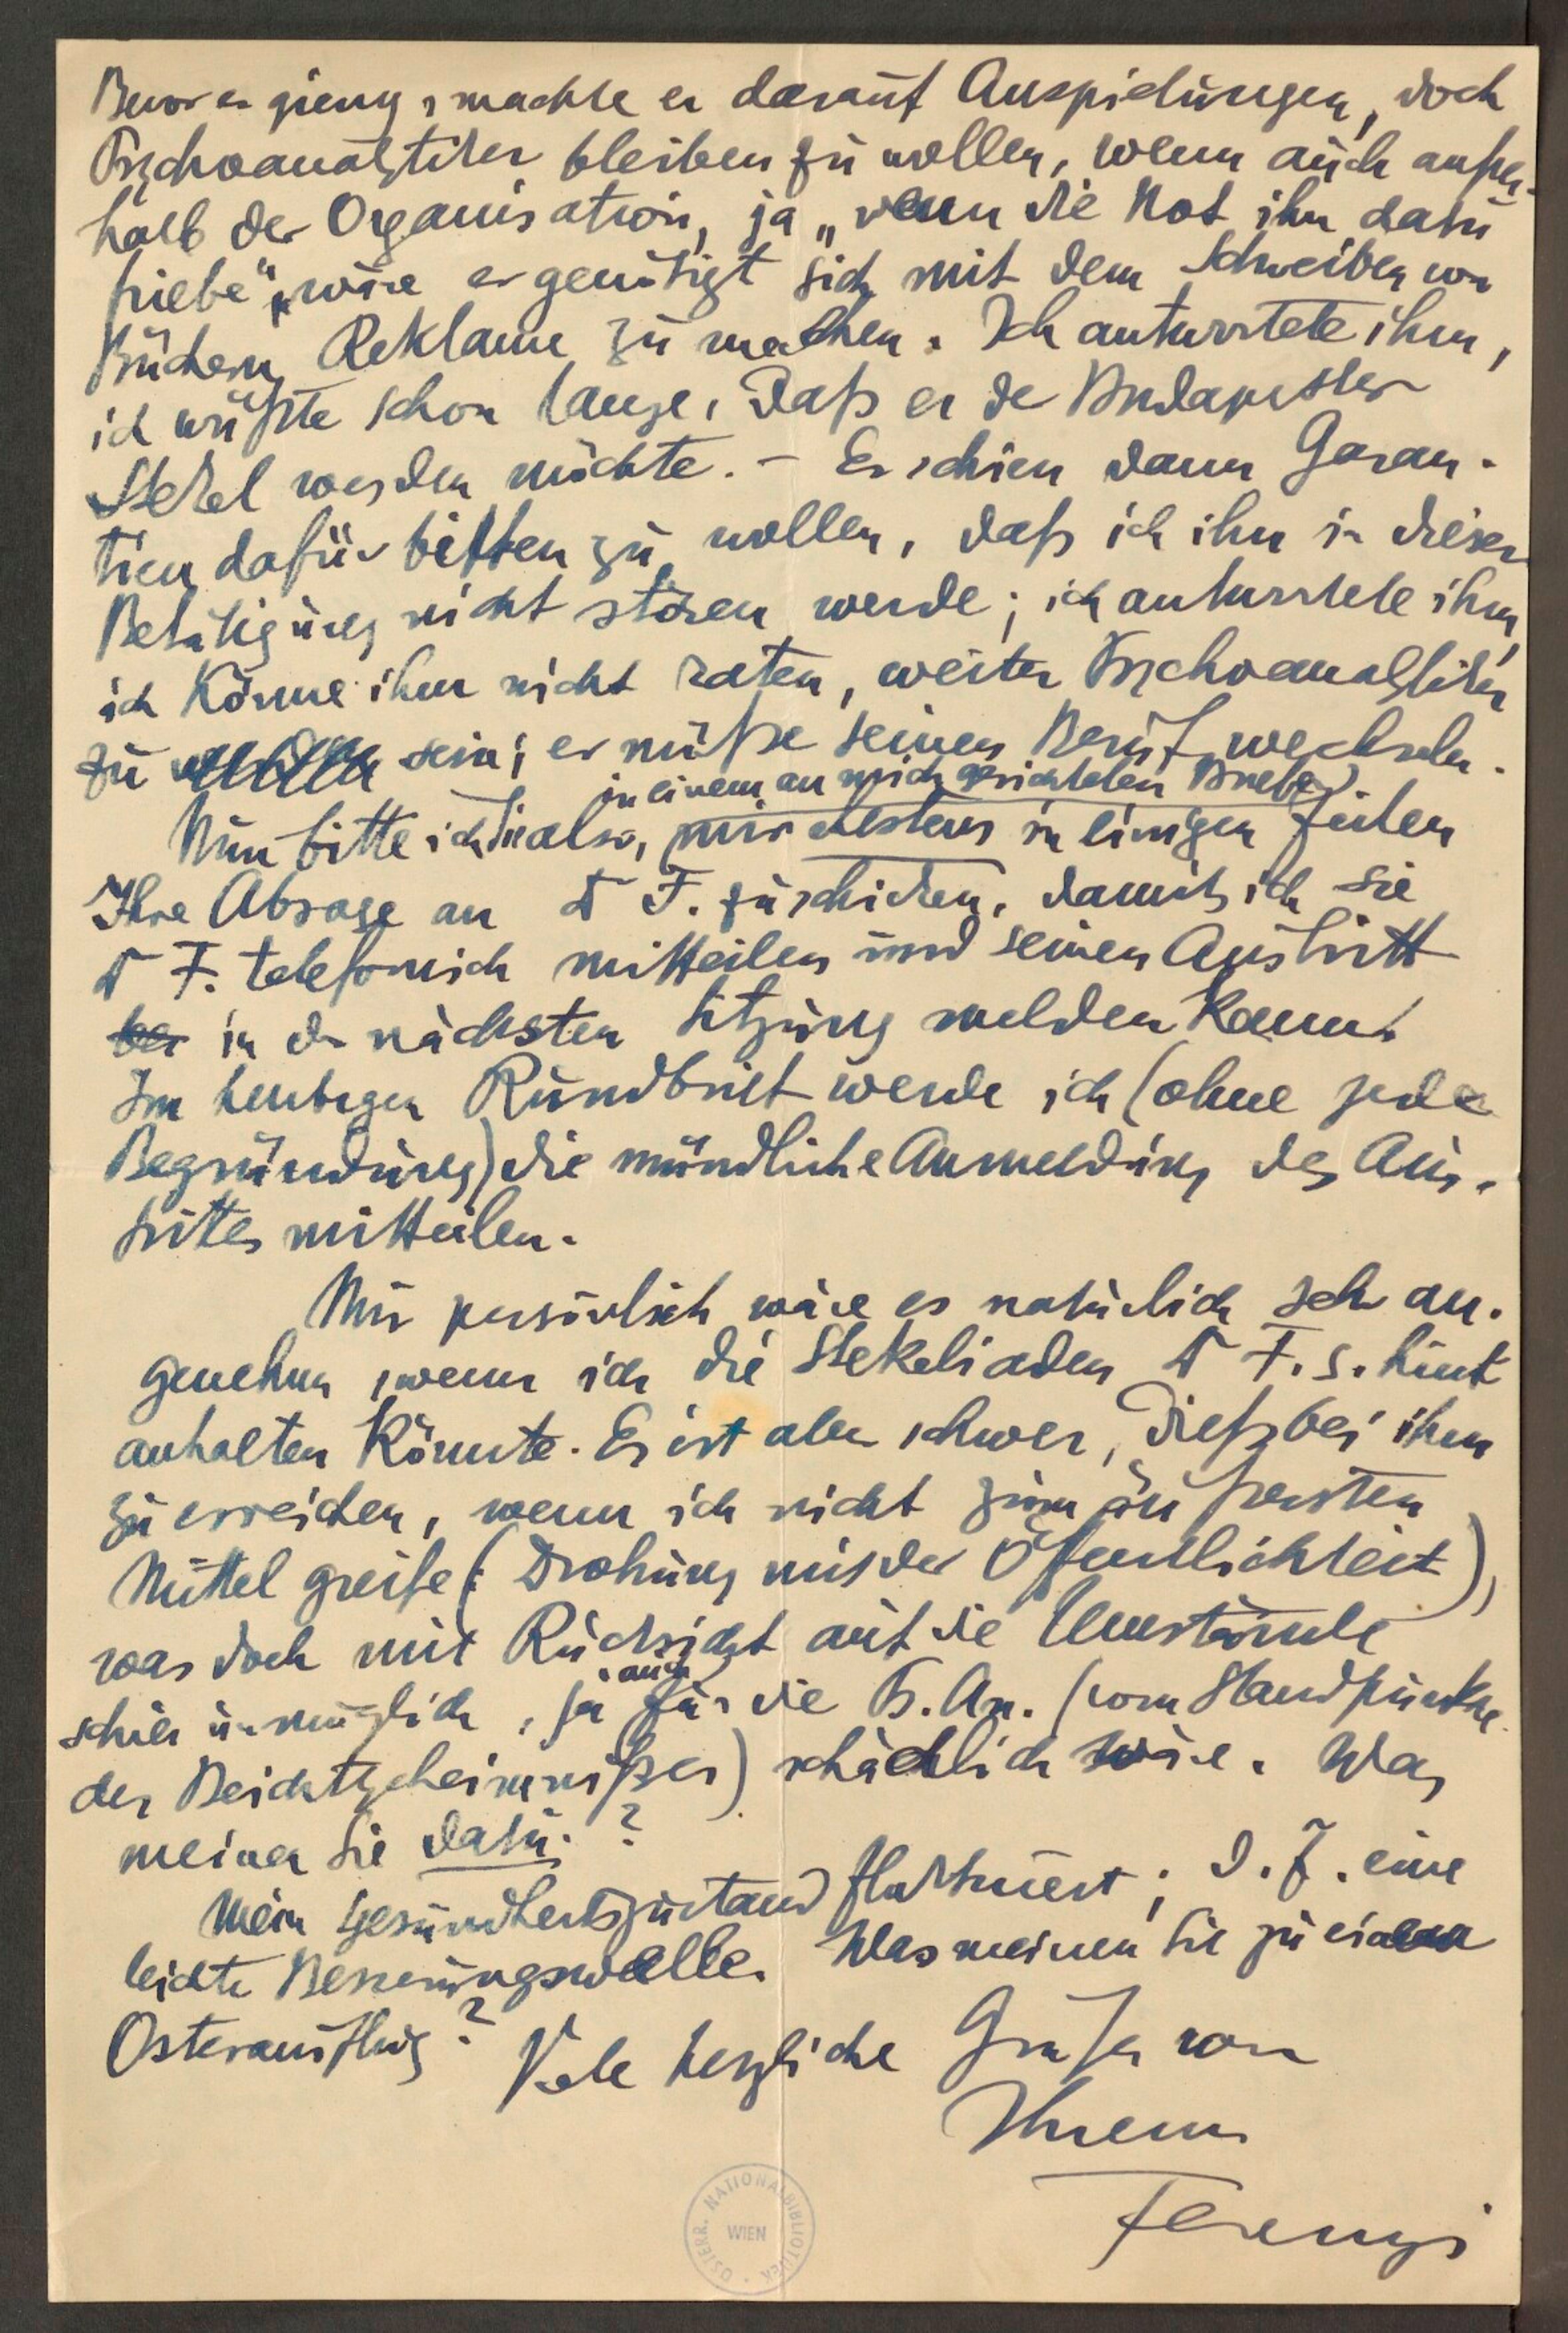 Bevor er gieng, machte er darauf Anspielungen, doch
Psychoanalytiker bleiben zu wollen, wenn auch außer-
halb der Organisation, ja „wenn die Not ihn dazu
triebe“, wäre er genötigt sich mit dem Schreiben von
Büchern Reklame zu machen. Ich antwortete ihm,
ich wußte schon lange, daß er der Budapester
Stekel werden möchte. – Er schien dann Garan-
tien dafür bitten zu wollen, daß ich ihn in dieser
Betätigung nicht stören werde; ich antwortete ihm,
ich könne ihm nicht raten, weiter Psychoanalytiker
zu sein; er müße seinen Beruf wechseln.
in einem an mich gerichteten Briefe
Nun bitte ich Sie also, mir ehestens in einigen Zeilen
Ihre Absage an Dr F. zu schicken, damit ich sie
Dr F. telefonisch mitteilen und seinen Austritt
bei in der nächsten Sitzung melden kann.
Im heutigen Rundbrief werde ich (ohne jede
Begründung) die mündliche Anmeldung des Aus-
trittes mitteilen.
Mir persönlich wäre es natürlich sehr an-
genehm, wenn ich die Stekeliaden Dr F.s. hint
anhalten könnte. Es ist aber schwer, dieß bei ihm
zu erreichen, wenn ich nicht zum äußersten
Mittel greife (: Drohung mit der Öffentlichkeit),
was doch mit Rücksicht auf die Umstände
schier unmöglich, ja auch für die Ps.An. (vom Standpunkte
des Beichtgeheimnißes) schädlich wäre. Was
meinen Sie dazu?
Mein Gesundheitszustand fluktuiert; d. Z. eine
leichte Besserungswelle. Was meinen Sie zu einem
Osterausflug?
Viele herzliche Grüße von
Ihrem
Ferenczi
ÖSTERR. NATIONALBIBLIOTHEK
WIEN